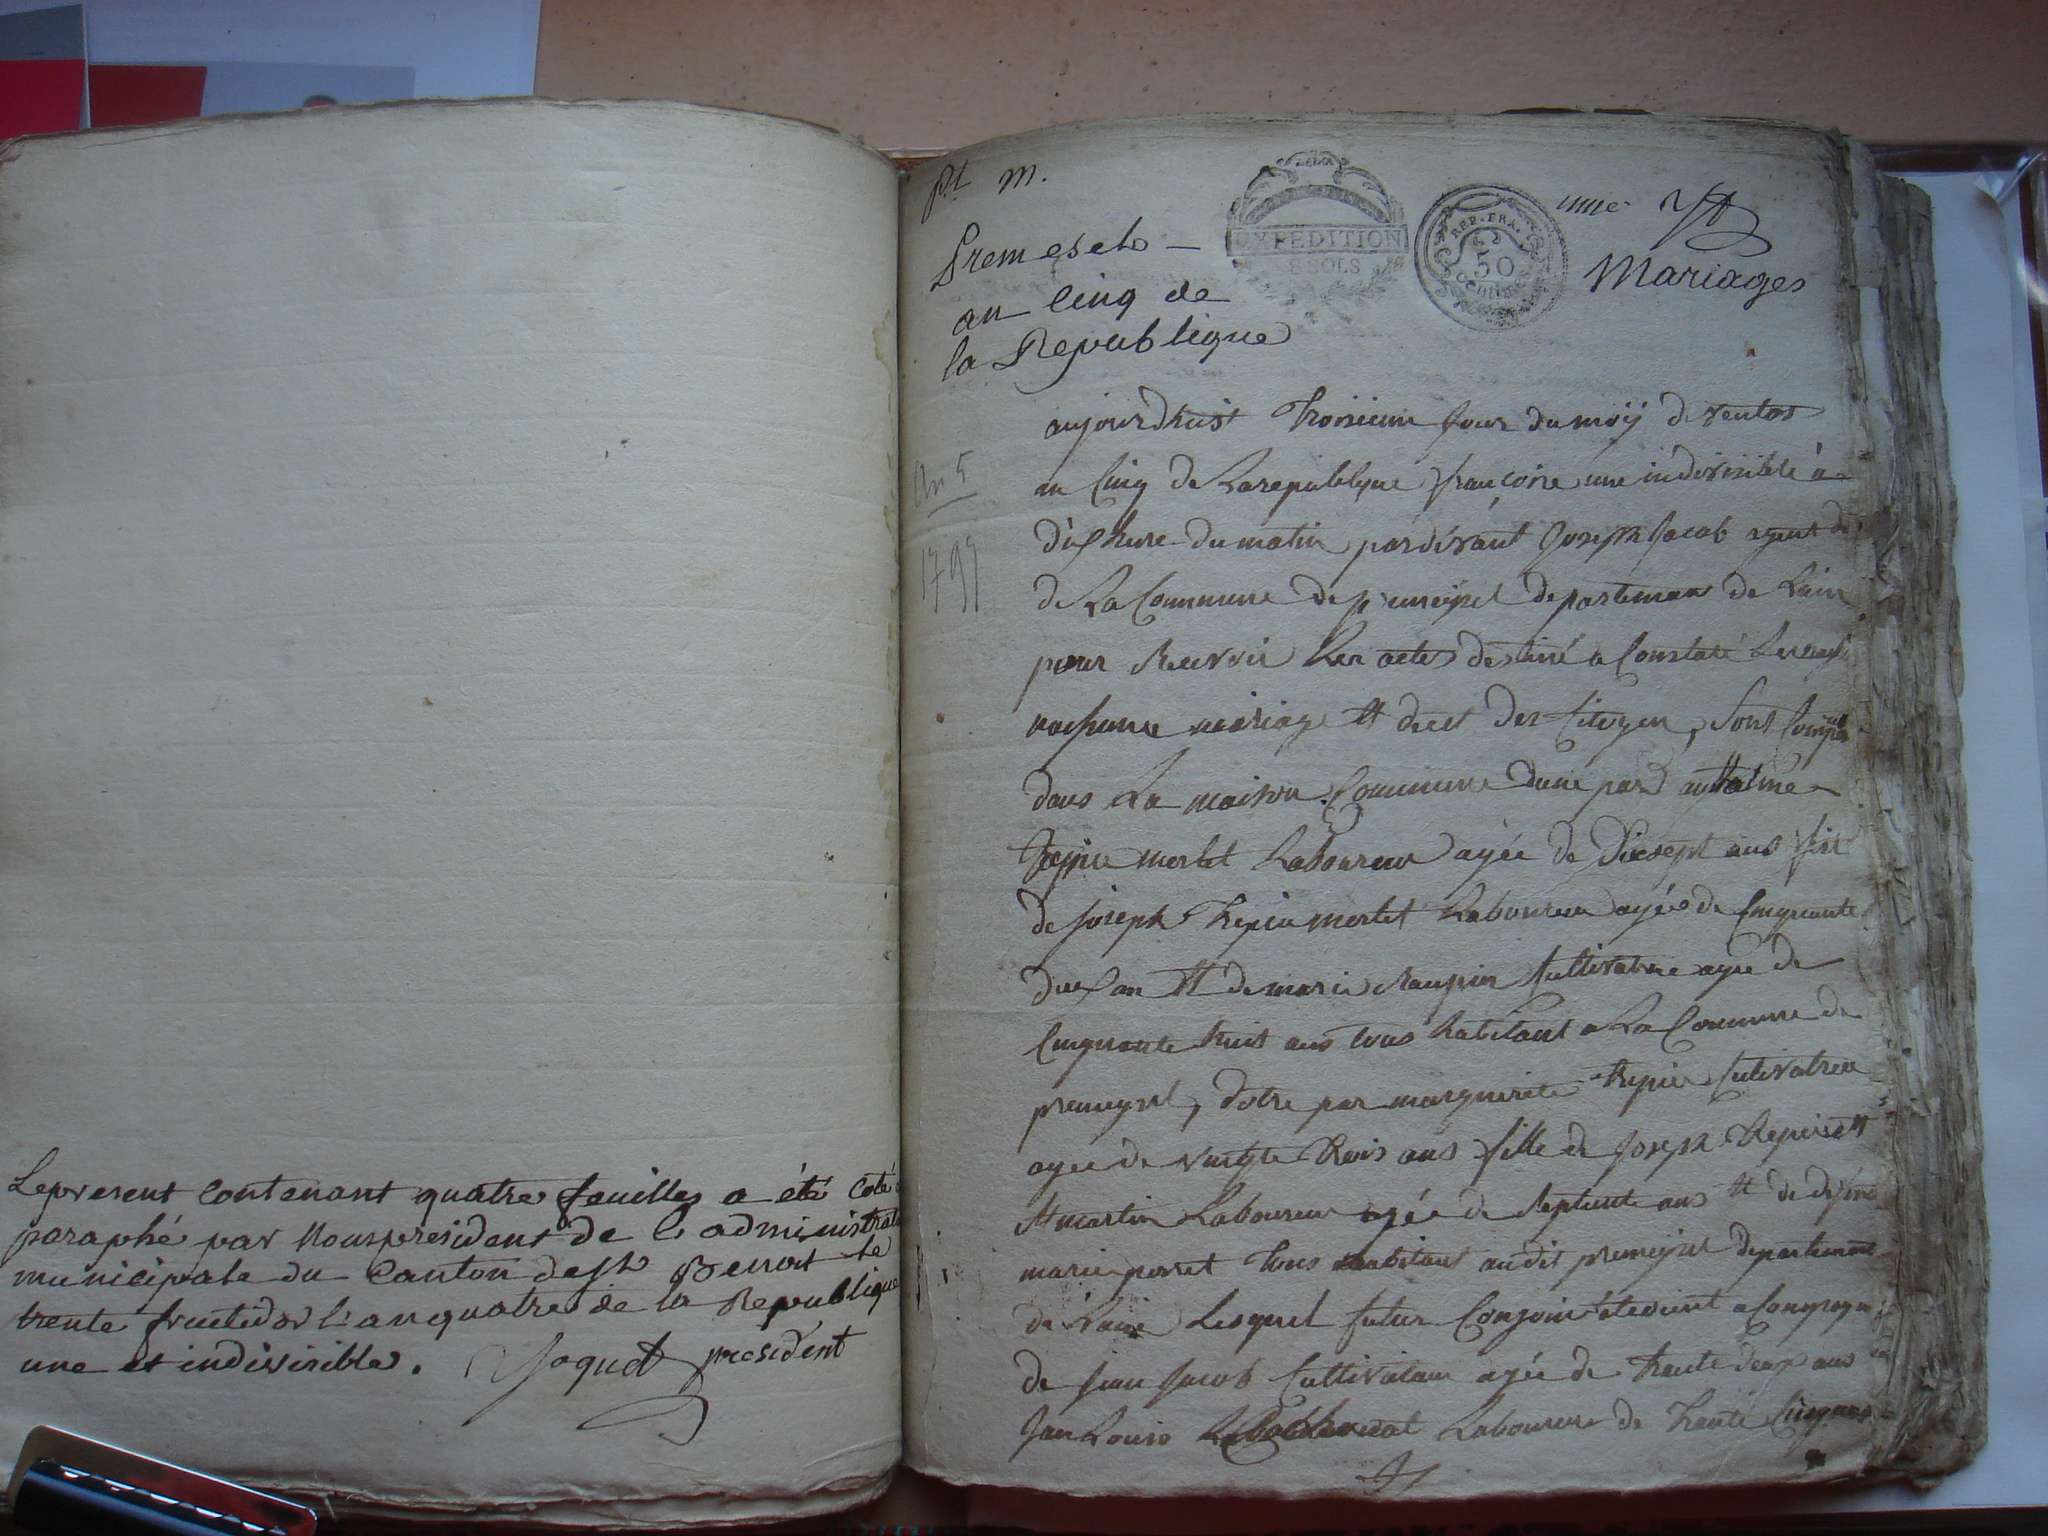 Le present contenant quatre feuilles a été coté
paraphé par Nous president de l'administrat
municipale du Canton de st Benoit le
trente fructidor l'an quatre de la Republique
une et indivisible. Joquet president
Pt m.
EXPEDITION
8 SOLS
REP. FRA.
50
Centimes
une
Premeselo
an Cinq de
la Republique
Mariages
An 5
1797
aujourdhuit troisieme Jour du moij de ventos
an Cinq de La republque francoise une indivisible à
dix hure du matin pardevant Joseph Jacob agent de
de La Commune de premeysel departeman de Lain
pour Recevoir Les actes destiné a Constaté Les
naissance mariage et decet des Citoyen, sont Compa
dans La maison Commune dune part anttoine
Trepier morlet Laboureur agée de Dixsept ans fist
de joseph Trepier morlet Laboureur agée de Cinquante
deux an et de marie cultivatrice agée de
Cinquante huit ans tous habitant a La Commune de
premeysel, dotre par marguerite trepier cultivatrice
agée de vingte trois ans fille de Joseph Trepier
st martin Laboureur agée de Septante ans et de
marie perret tous habitant audit premeysel departement
de Lain Lesquel futur Conjoint étevient acompagné
de jean Jacob Cultivateur agée de trente deux ans
Jan Louis Laboureur de trente Cinq ans